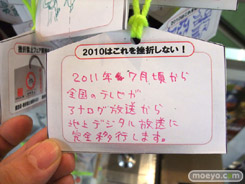 2010はこれを挫折しない!
2011年7月頃から
全国のテレビが
アナログ放送から
地上デジタル放送に
完全移行します。
moeyo.com